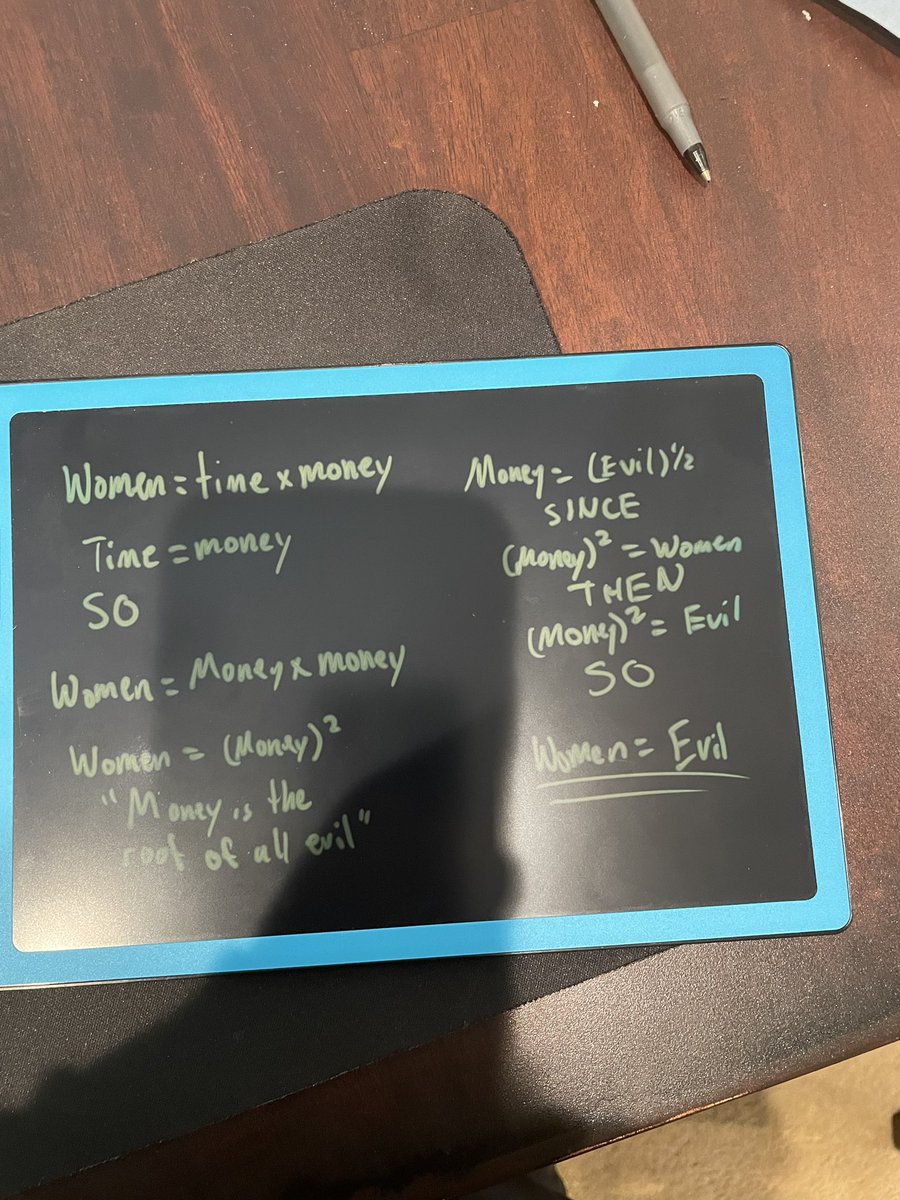 Women = time x money
Time = money
SO
Women = Money x money
Women = (Money)²
"Money is the
root of all evil"
Money = (Evil)^1/2
SINCE
(Money)² = Women
THEN
(Money)² = Evil
SO
Women = Evil